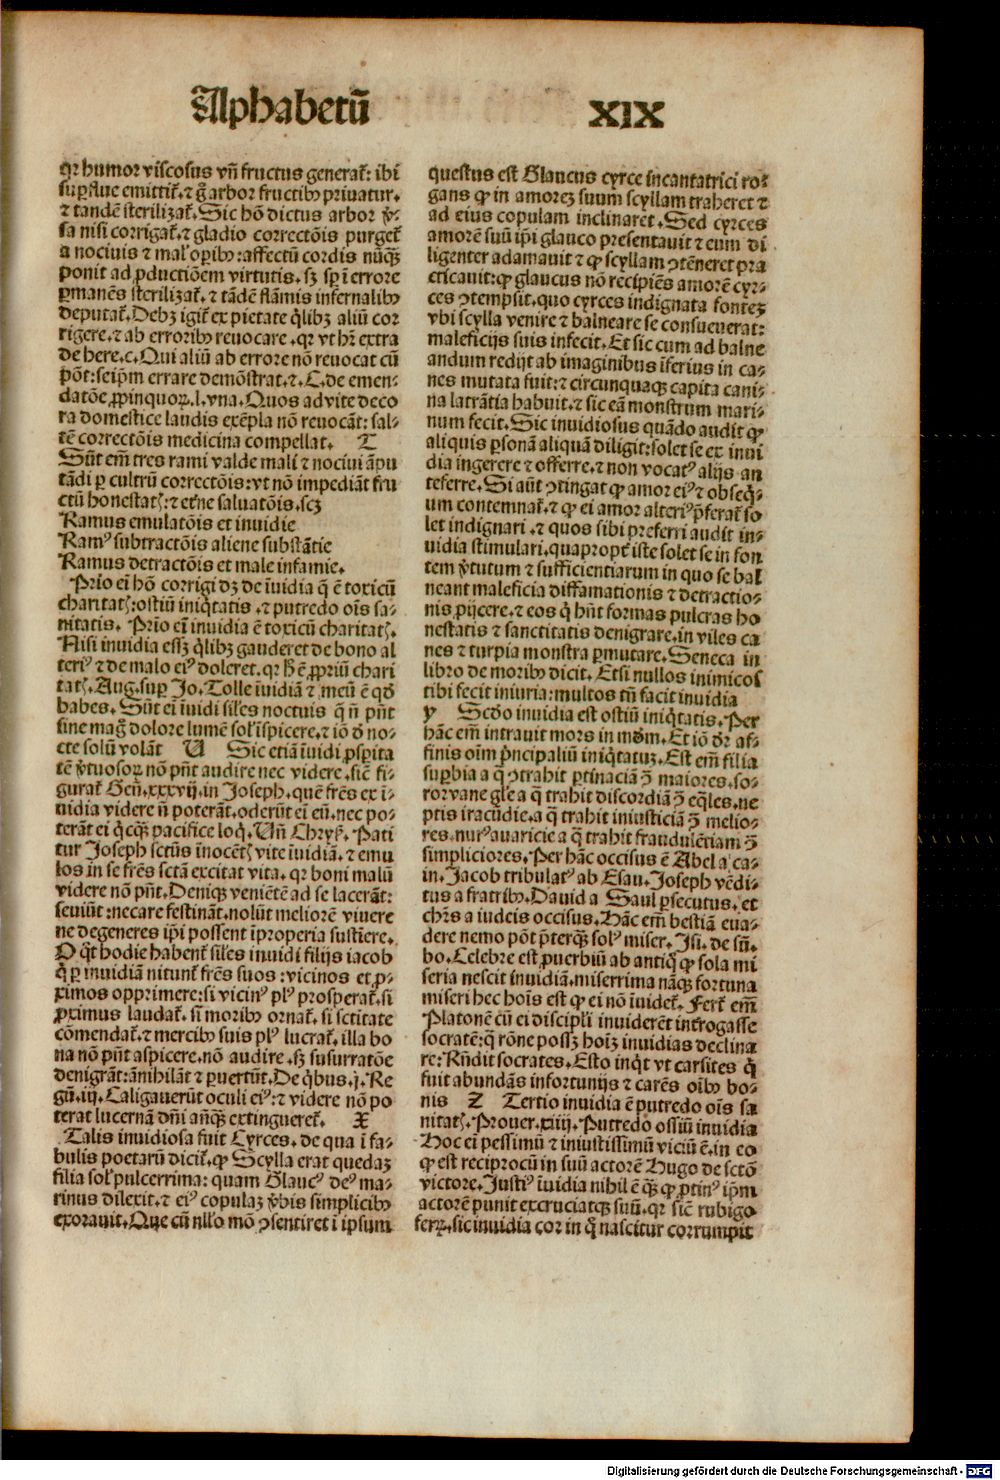 Alphabetū XIX
qr humor viscosus vñ fructus generat᷑: ibi
suꝑflue emittit᷑. ⁊ g̃ arbor fructibꝰ priuatur.
⁊ tandē sterilizat᷑. Sic hõ dictus arbor ꝟ͛-
sa nisi corrigat᷑. ⁊ gladio correctõis purget᷑
a nociuis ⁊ mal' oꝑibꝰ: affectũ cordis nũqꝫ
ponit ad ꝓductiõem virtutis. sꝫ sꝑ ĩ errore
ꝑmanēs sterilizat᷑. ⁊ tãdē flãmis infernalibꝰ
deputat᷑. Debꝫ igit᷑ ex pietate q̃libꝫ aliũ cor
rigere. ⁊ ab erroribꝰ reuocare. qr vt hr̃ extra
de here. c. Qui aliũ ab errore nõ reuocat cũ
põt: seip̃m errare demõstrat. ⁊. C. de emen-
datõe ꝓpinquoꝝ. l. vna. Quos ad vite deco
ra domestice laudis exēpla nõ reuocãt: sal-
tē correctõis medicina compellat. T
Sũt em̃ tres rami valde mali ⁊ nociui ãpu
tãdi ꝑ cultrũ correctõis: vt nõ impediãt fru
ctũ honestatꝭ: ⁊ etñe saluatõis. scꝫ
Ramus emulatõis et inuidie
Ramꝰ subtractõis aliene substãtie
Ramus detractõis et male infamie.
Prio ei hõ corrigi dꝫ de ĩuidia q̃ ē toxicũ
charitatꝭ: ostiũ iniq̃tatis. ⁊ putredo oĩs sa-
nitatis. Prio eĩ inuidia ē toxicũ charitatꝭ.
Nisi inuidia essꝫ q̃libꝫ gauderet de bono al
teriꝰ ⁊ de malo eiꝰ doleret. qr h̃ ē ꝓpriũ chari
tatꝭ. Aug. suꝑ Jo. Tolle ĩuidiã ⁊ meũ ē qð
habes. Sũt ei ĩuidi siles noctuis q̃ ñ pñt
sine mag̃ dolore lumē sol' ĩspicere. ⁊ iõ ð no-
cte solũ volãt U Sic etiã ĩuidi ꝓsꝑita
tē ꝟtuosoꝝ nõ pñt audire nec videre. sic̃ fi-
gurat᷑ Geñ. xxxvij. in Joseph. quē fr̃es ex ĩ-
uidia videre ñ poterãt. oderũt ei eũ. nec po-
terãt ei q̃cqꝫ pacifice loq̃. Vñ Chrys̃. Pati
tur Joseph sctũs ĩnocētꝭ vite ĩuidiã. ⁊ emu
los in se fr̃es sctã excitat vita. qr boni malũ
videre nõ pñt. Deniqꝫ veniētē ad se lacerãt:
seuiũt: necare festinãt. nolũt meliorē viuere
ne degeneres ip̃i possent ĩproperia sustĩere.
O q̃t hodie habent᷑ siles inuidi filijs iacob
q̃ ꝑ inuidiã nitunt᷑ fr̃es suos: vicinos et ꝓ-
ximos opprimere: si vicinꝰ plꝰ prosperat᷑. si
ꝓximus laudat᷑. si moribꝰ ornat᷑. si sctitate
cõmendat᷑. ⁊ mercibꝰ suis plꝰ lucrat᷑. illa bo
na nõ pñt aspicere. nõ audire. sꝫ susurratõe
denigrãt: ãnihilãt ⁊ ꝑuertũt. De q̃bus. j. Re
gũ. iij. Caligauerũt oculi eiꝰ: ⁊ videre nõ po
terat lucernã dñi añqꝫ extingueret᷑. X
Talis inuidiosa fuit Cyrces. de qua ĩ fa-
bulis poetarũ dicit᷑. ꝙ Scylla erat quedaꝫ
filia sol' pulcerrima: quam Glaucꝰ deꝰ ma-
rinus dilexit. ⁊ eiꝰ copulaꝫ ꝟbis simplicibꝰ
exorauit. Que cũ nllo mõ ↄsentiret ĩ ipsum
questus est Glaucus cyrce incantatrici ro-
gans ꝙ in amoreꝫ suum scyllam traheret ⁊
ad eius copulam inclinaret. Sed cyrces
amorē suũ ip̃i glauco presentauit ⁊ eum di
ligenter adamauit ⁊ ꝙ scyllam ↄtēneret pra
cticauit: ꝙ glaucus nõ recipiēs amorē cyr-
ces ↄtempsit. quo cyrces indignata fonteꝫ
vbi scylla venire ⁊ balneare se consueuerat:
maleficijs suis infecit. Et sic cum ad balne
andum redijt ab imaginibus ĩferius in ca-
nes mutata fuit: ⁊ circunquaqꝫ capita cani-
na latrãtia habuit. ⁊ sic eã monstrum mari-
num fecit. Sic inuidiosus quãdo audit ꝙ
aliquis ꝑsonã aliquã diligit: solet se ex inui
dia ingerere ⁊ offerre. ⁊ non vocatꝰ alijs an
teferre. Si aũt ↄtingat ꝙ amor eiꝰ ⁊ obseq̃-
um contemnat᷑. ⁊ ꝙ ei amor alteriꝰ p̃ferat᷑ so
let indignari. ⁊ quos sibi preferri audit in-
uidia stimulari. quapropt᷑ iste solet se in fon
tem ꝟtutum ⁊ sufficientiarum in quo se bal
neant maleficia diffamationis ⁊ detractio-
nis ꝓijcere. ⁊ eos q̃ hñt formas pulcras ho
nestatis ⁊ sanctitatis denigrare. in viles ca
nes ⁊ turpia monstra ꝑmutare. Seneca in
libro de moribꝰ dicit. Etsi nullos inimicos
tibi fecit iniuria: multos tñ facit inuidia
y Scðo inuidia est ostiũ iniq̃tatis. Per
hãc em̃ intrauit mors in mũdm. Et iõ ðr af-
finis oĩm p̃ncipaliũ iniq̃tatuꝫ. Est em̃ filia
suꝑbia a q̃ ↄtrahit ꝑtinaciã ↄ̃ maiores. so-
ror vane gl'e a q̃ trahit discordiã ↄ̃ eq̃les. ne
ptis iracũdie. a q̃ trahit iniusticiã ↄ̃ melio-
res. nurꝰ auaricie a q̃ trahit fraudulētiam ↄ̃
simpliciores. Per hãc occisus ē Abel a ca-
in. Jacob tribulatꝰ ab Esau. Joseph vēdi-
tus a fratribꝰ. Dauid a Saul ꝑsecutus. et
chr̃s a iudeis occisus. Hãc em̃ bestiã eua-
dere nemo põt p̃terqꝫ solꝰ miser. Jsi. de sũ.
bo. Celebre est ꝓuerbiũ ab antiq̃ ꝙ sola mi
seria nescit inuidiã. miserrima nãqꝫ fortuna
miseri hec hoĩs est ꝙ ei nõ ĩuidet᷑. Fert᷑ em̃
Platonē cũ ei discipli inuiderēt int᷑rogasse
socratē: q̃ rõne possꝫ hoĩꝫ inuidias declina
re: Rñdit socrates. Esto inq̃t vt carsites q̃
fuit abundãs infortunijs ⁊ carēs oĩbꝰ bo-
nis Z Tertio inuidia ē putredo oĩs sa
nitatꝭ. Prouer. xiiij. Putredo ossiũ inuidia
Hoc ei pessimũ ⁊ iniustissimũ viciũ ē. in eo
ꝙ est reciprocũ in suũ actorē Hugo de sctõ
victore. Justiꝰ ĩuidia nihil ē qꝫ ꝙ ꝓtinꝰ ip̃m
actorē punit excruciatqꝫ suũ. qr sic̃ rubigo
ferꝝ. sic inuidia cor in q̃ nascitur corrumpit
Digitalisierung gefördert durch die Deutsche Forschungsgemeinschaft - DFG